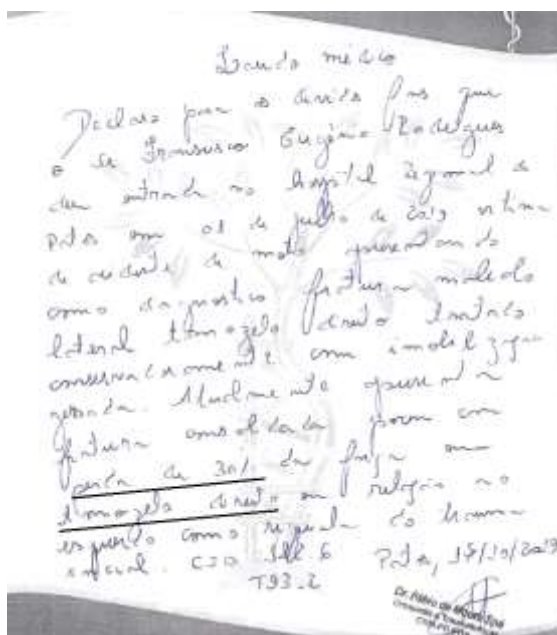 Laudo médico
Declaro para os devidos fins que
o sr Francisco Eugênio Rodrigues
deu entrada no hospital regional de
Patos em 01 de julho de 2019 vítima
de acidente de moto apresentando
como diagnostico fratura maleolo
lateral tornozelo direito tratado
conservadoramente com imobilização
gessada. Atualmente apresenta
fratura consolidada porem com
perda de 30% da força no
tornozelo direito em relação ao
esquerdo como sequela do trauma
inicial. CID S82.6 Patos, /10/2019
T93.2